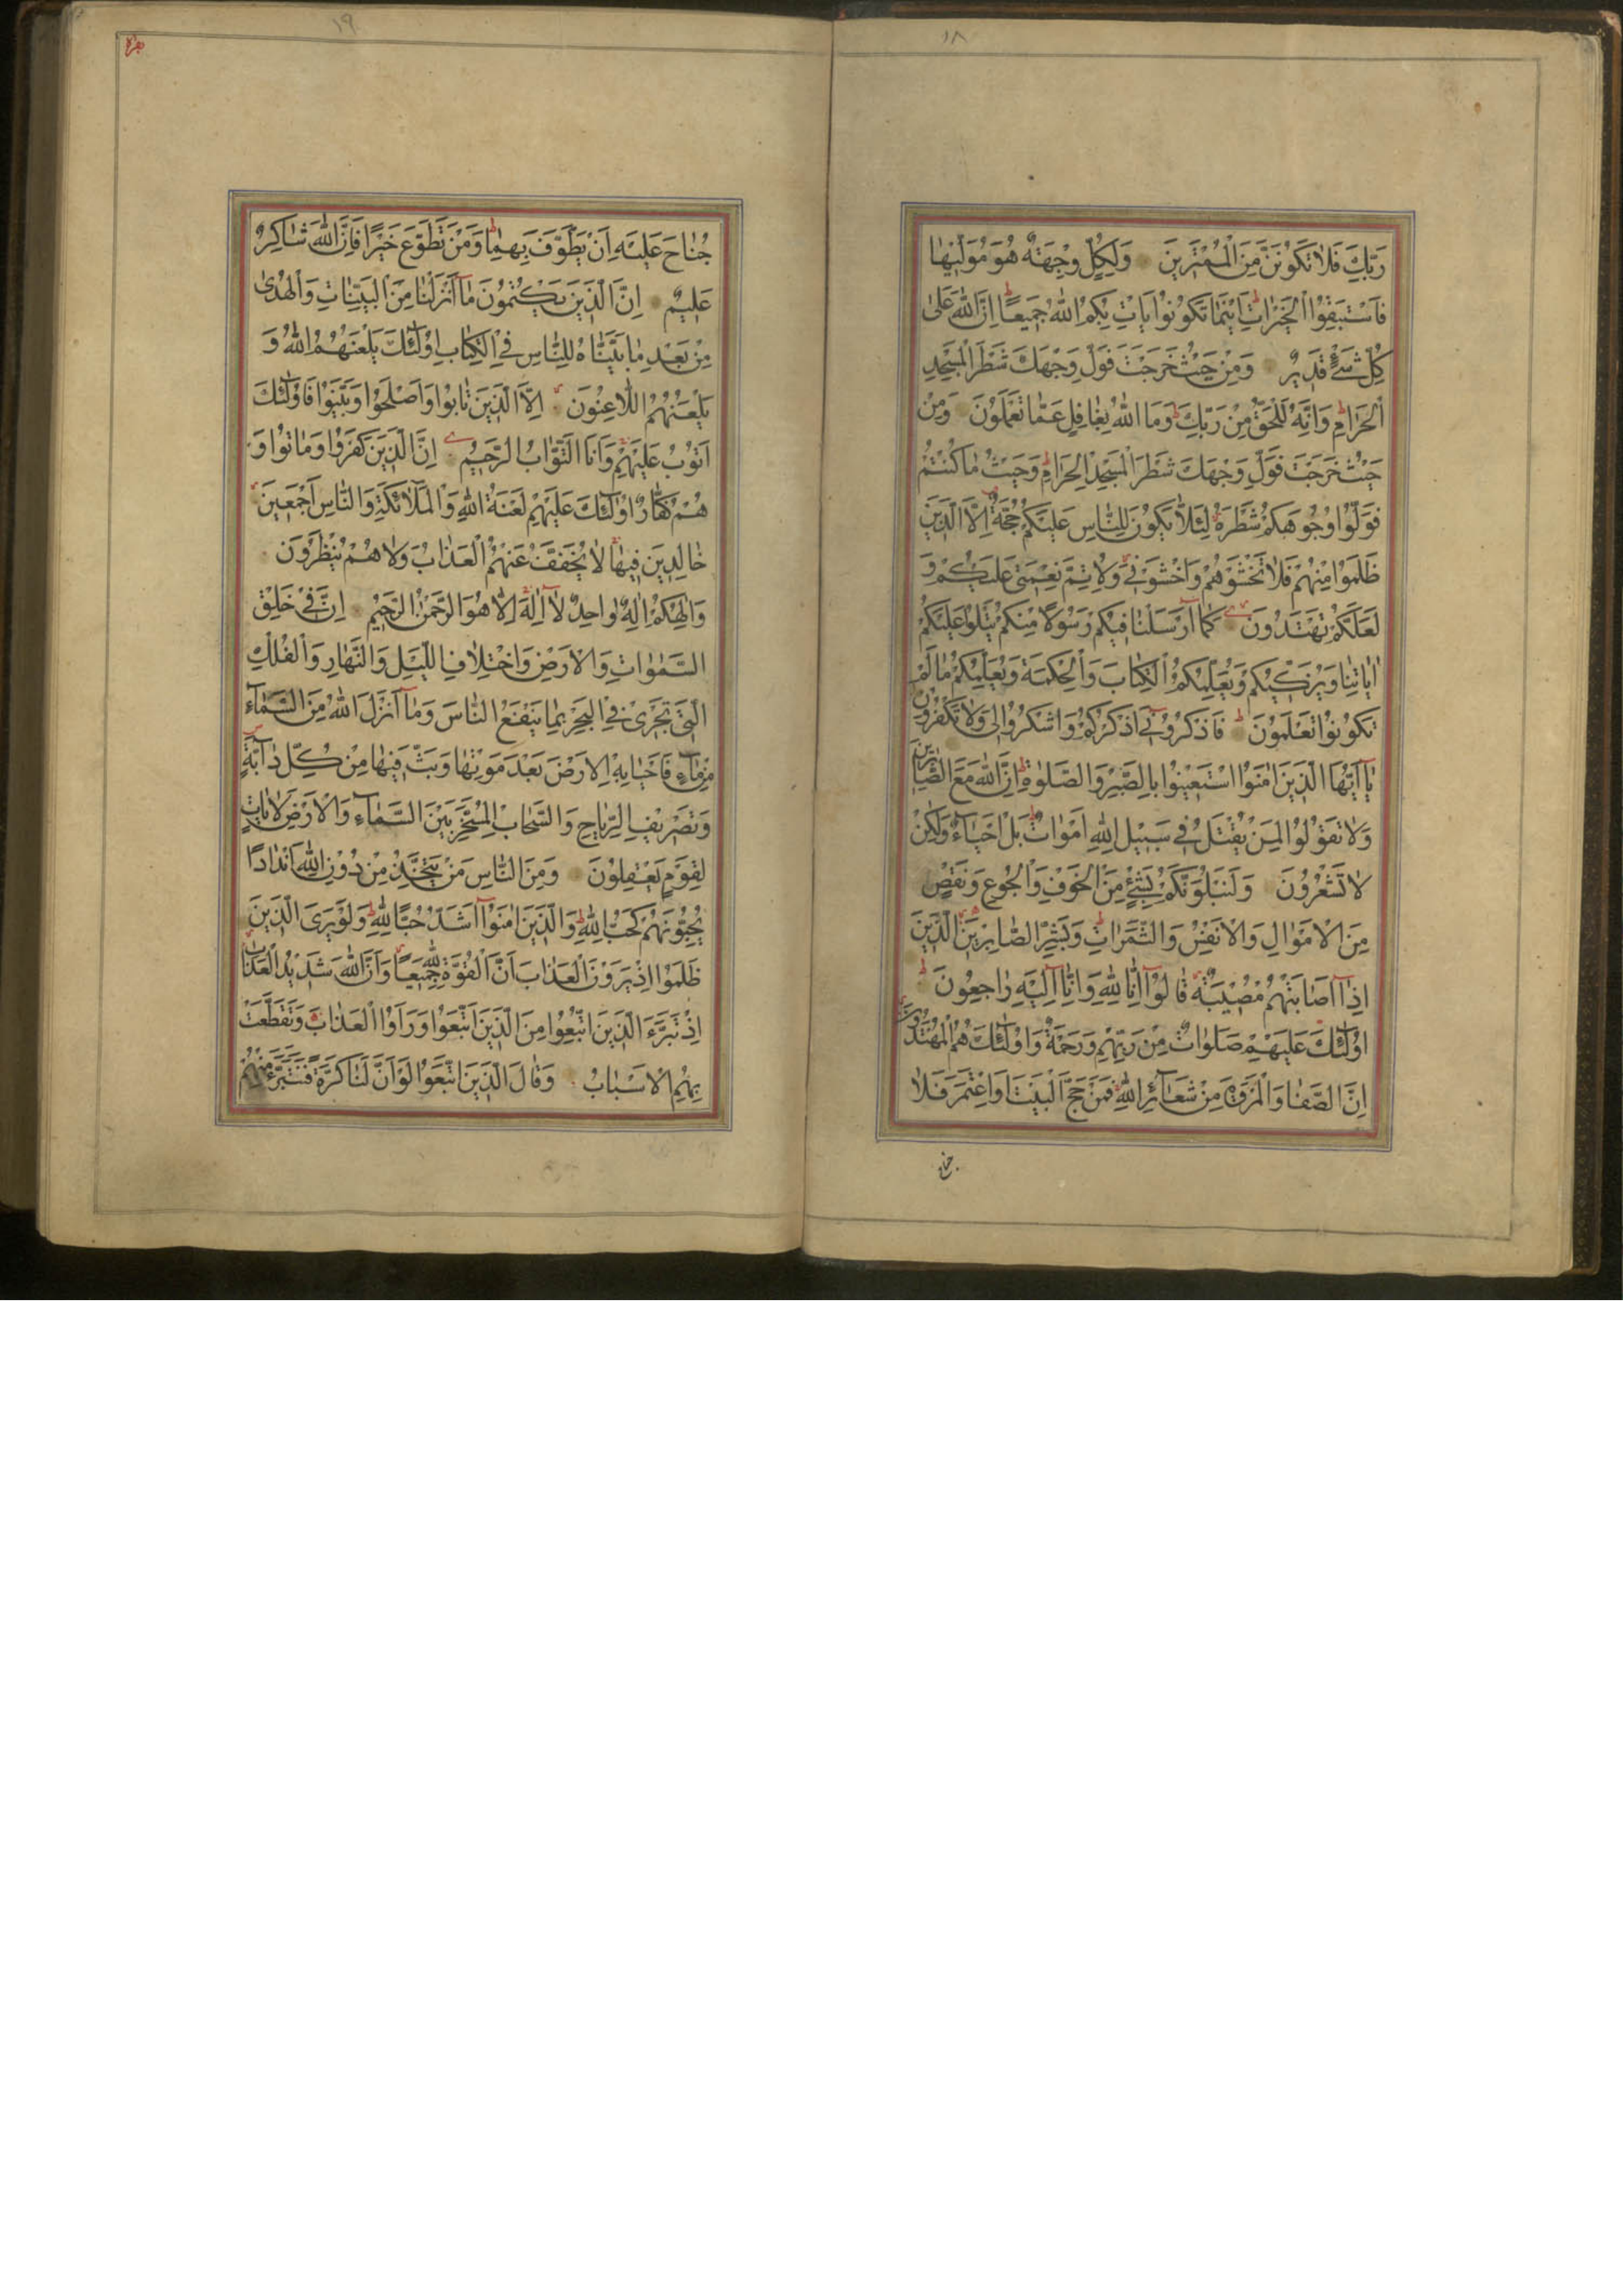 ١٨
رَبِّكَ فَلَا تَكُونَنَّ مِنَ الْمُمْتَرِينَ وَلِكُلٍّ وِجْهَةٌ هُوَ مُوَلِّيهَا
فَاسْتَبِقُوا الْخَيْرَاتِ اَيْنَمَا تَكُونُوا يَاْتِ بِكُمُ اللّٰهُ جَمِيعًا اِنَّ اللّٰهَ عَلٰى
كُلِّ شَيْءٍ قَدِيرٌ وَمِنْ حَيْثُ خَرَجْتَ فَوَلِّ وَجْهَكَ شَطْرَ الْمَسْجِدِ
الْحَرَامِ وَاِنَّهُ لَلْحَقُّ مِنْ رَبِّكَ وَمَا اللّٰهُ بِغَافِلٍ عَمَّا تَعْمَلُونَ وَمِنْ
حَيْثُ خَرَجْتَ فَوَلِّ وَجْهَكَ شَطْرَ الْمَسْجِدِ الْحَرَامِ وَحَيْثُ مَا كُنْتُمْ
فَوَلُّوا وُجُوهَكُمْ شَطْرَهُ لِئَلَّا يَكُونَ لِلنَّاسِ عَلَيْكُمْ حُجَّةٌ اِلَّا الَّذِينَ
ظَلَمُوا مِنْهُمْ فَلَا تَخْشَوْهُمْ وَاخْشَوْنِي وَلِاُتِمَّ نِعْمَتِي عَلَيْكُمْ وَ
لَعَلَّكُمْ تَهْتَدُونَ كَمَا اَرْسَلْنَا فِيكُمْ رَسُولًا مِنْكُمْ يَتْلُوا عَلَيْكُمْ
اٰيَاتِنَا وَيُزَكِّيكُمْ وَيُعَلِّمُكُمُ الْكِتَابَ وَالْحِكْمَةَ وَيُعَلِّمُكُمْ مَا لَمْ
تَكُونُوا تَعْلَمُونَ فَاذْكُرُونِي اَذْكُرْكُمْ وَاشْكُرُوا لِي وَلَا تَكْفُرُونِ
يَا اَيُّهَا الَّذِينَ اٰمَنُوا اسْتَعِينُوا بِالصَّبْرِ وَالصَّلٰوةِ اِنَّ اللّٰهَ مَعَ الصَّابِرِينَ
وَلَا تَقُولُوا لِمَنْ يُقْتَلُ فِي سَبِيلِ اللّٰهِ اَمْوَاتٌ بَلْ اَحْيَاءٌ وَلٰكِنْ
لَا تَشْعُرُونَ وَلَنَبْلُوَنَّكُمْ بِشَيْءٍ مِنَ الْخَوْفِ وَالْجُوعِ وَنَقْصٍ
مِنَ الْاَمْوَالِ وَالْاَنْفُسِ وَالثَّمَرَاتِ وَبَشِّرِ الصَّابِرِينَ الَّذِينَ
اِذَا اَصَابَتْهُمْ مُصِيبَةٌ قَالُوا اِنَّا لِلّٰهِ وَاِنَّا اِلَيْهِ رَاجِعُونَ
اُولٰئِكَ عَلَيْهِمْ صَلَوَاتٌ مِنْ رَبِّهِمْ وَرَحْمَةٌ وَاُولٰئِكَ هُمُ الْمُهْتَدُونَ
اِنَّ الصَّفَا وَالْمَرْوَةَ مِنْ شَعَائِرِ اللّٰهِ فَمَنْ حَجَّ الْبَيْتَ اَوِ اعْتَمَرَ فَلَا
جناح
١٩
جُنَاحَ عَلَيْهِ اَنْ يَطَّوَّفَ بِهِمَا وَمَنْ تَطَوَّعَ خَيْرًا فَاِنَّ اللّٰهَ شَاكِرٌ
عَلِيمٌ اِنَّ الَّذِينَ يَكْتُمُونَ مَا اَنْزَلْنَا مِنَ الْبَيِّنَاتِ وَالْهُدٰى
مِنْ بَعْدِ مَا بَيَّنَّاهُ لِلنَّاسِ فِي الْكِتَابِ اُولٰئِكَ يَلْعَنُهُمُ اللّٰهُ وَ
يَلْعَنُهُمُ اللَّاعِنُونَ اِلَّا الَّذِينَ تَابُوا وَاَصْلَحُوا وَبَيَّنُوا فَاُولٰئِكَ
اَتُوبُ عَلَيْهِمْ وَاَنَا التَّوَّابُ الرَّحِيمُ اِنَّ الَّذِينَ كَفَرُوا وَمَاتُوا وَ
هُمْ كُفَّارٌ اُولٰئِكَ عَلَيْهِمْ لَعْنَةُ اللّٰهِ وَالْمَلٰائِكَةِ وَالنَّاسِ اَجْمَعِينَ
خَالِدِينَ فِيهَا لَا يُخَفَّفُ عَنْهُمُ الْعَذَابُ وَلَا هُمْ يُنْظَرُونَ
وَاِلٰهُكُمْ اِلٰهٌ وَاحِدٌ لَا اِلٰهَ اِلَّا هُوَ الرَّحْمٰنُ الرَّحِيمُ اِنَّ فِي خَلْقِ
السَّمٰوَاتِ وَالْاَرْضِ وَاخْتِلَافِ اللَّيْلِ وَالنَّهَارِ وَالْفُلْكِ
الَّتِي تَجْرِي فِي الْبَحْرِ بِمَا يَنْفَعُ النَّاسَ وَمَا اَنْزَلَ اللّٰهُ مِنَ السَّمَاءِ
مِنْ مَاءٍ فَاَحْيَا بِهِ الْاَرْضَ بَعْدَ مَوْتِهَا وَبَثَّ فِيهَا مِنْ كُلِّ دَابَّةٍ
وَتَصْرِيفِ الرِّيَاحِ وَالسَّحَابِ الْمُسَخَّرِ بَيْنَ السَّمَاءِ وَالْاَرْضِ لَاٰيَاتٍ
لِقَوْمٍ يَعْقِلُونَ وَمِنَ النَّاسِ مَنْ يَتَّخِذُ مِنْ دُونِ اللّٰهِ اَنْدَادًا
يُحِبُّونَهُمْ كَحُبِّ اللّٰهِ وَالَّذِينَ اٰمَنُوا اَشَدُّ حُبًّا لِلّٰهِ وَلَوْ يَرَى الَّذِينَ
ظَلَمُوا اِذْ يَرَوْنَ الْعَذَابَ اَنَّ الْقُوَّةَ لِلّٰهِ جَمِيعًا وَاَنَّ اللّٰهَ شَدِيدُ الْعَذَابِ
اِذْ تَبَرَّءَ الَّذِينَ اتُّبِعُوا مِنَ الَّذِينَ اتَّبَعُوا وَرَاَوُا الْعَذَابَ وَتَقَطَّعَتْ
بِهِمُ الْاَسْبَابُ وَقَالَ الَّذِينَ اتَّبَعُوا لَوْ اَنَّ لَنَا كَرَّةً فَنَتَبَرَّءَ مِنْهُمْ